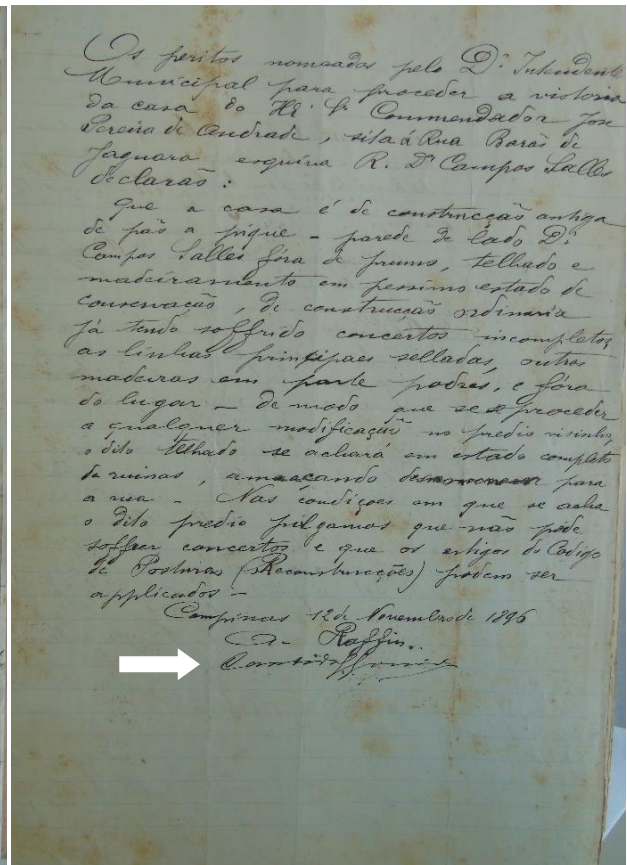 Os peritos nomeados pelo D.r Intendente
Municipal para proceder a vistoria
da casa do Commendador Jose
Pereira de Andrade, sita á Rua Barão de
Jaguara esquina R. D.r Campos Salles
declarão:
que a casa é de construcção antiga
de páo a pique – parede do lado D.r
Campos Salles fóra de prumo, telhado e
madeiramento em pessimo estado de
conservação, de construcção ordinaria
já tendo soffrido concertos incompletos,
as linhas principaes selladas, outras
madeiras em parte podres, e fóra
do lugar – de modo que se se proceder
a qualquer modificação no predio visinho,
o dito telhado se achará em estado completo
de ruinas, ameaçando para
a rua – Nas condições em que se acha
o dito predio julgamos que não póde
soffrer concertos e que os artigos do Codigo
de Posturas (Reconstrucções) podem ser
applicados –
Campinas 12 de Novembro de 1896
A. Raffin